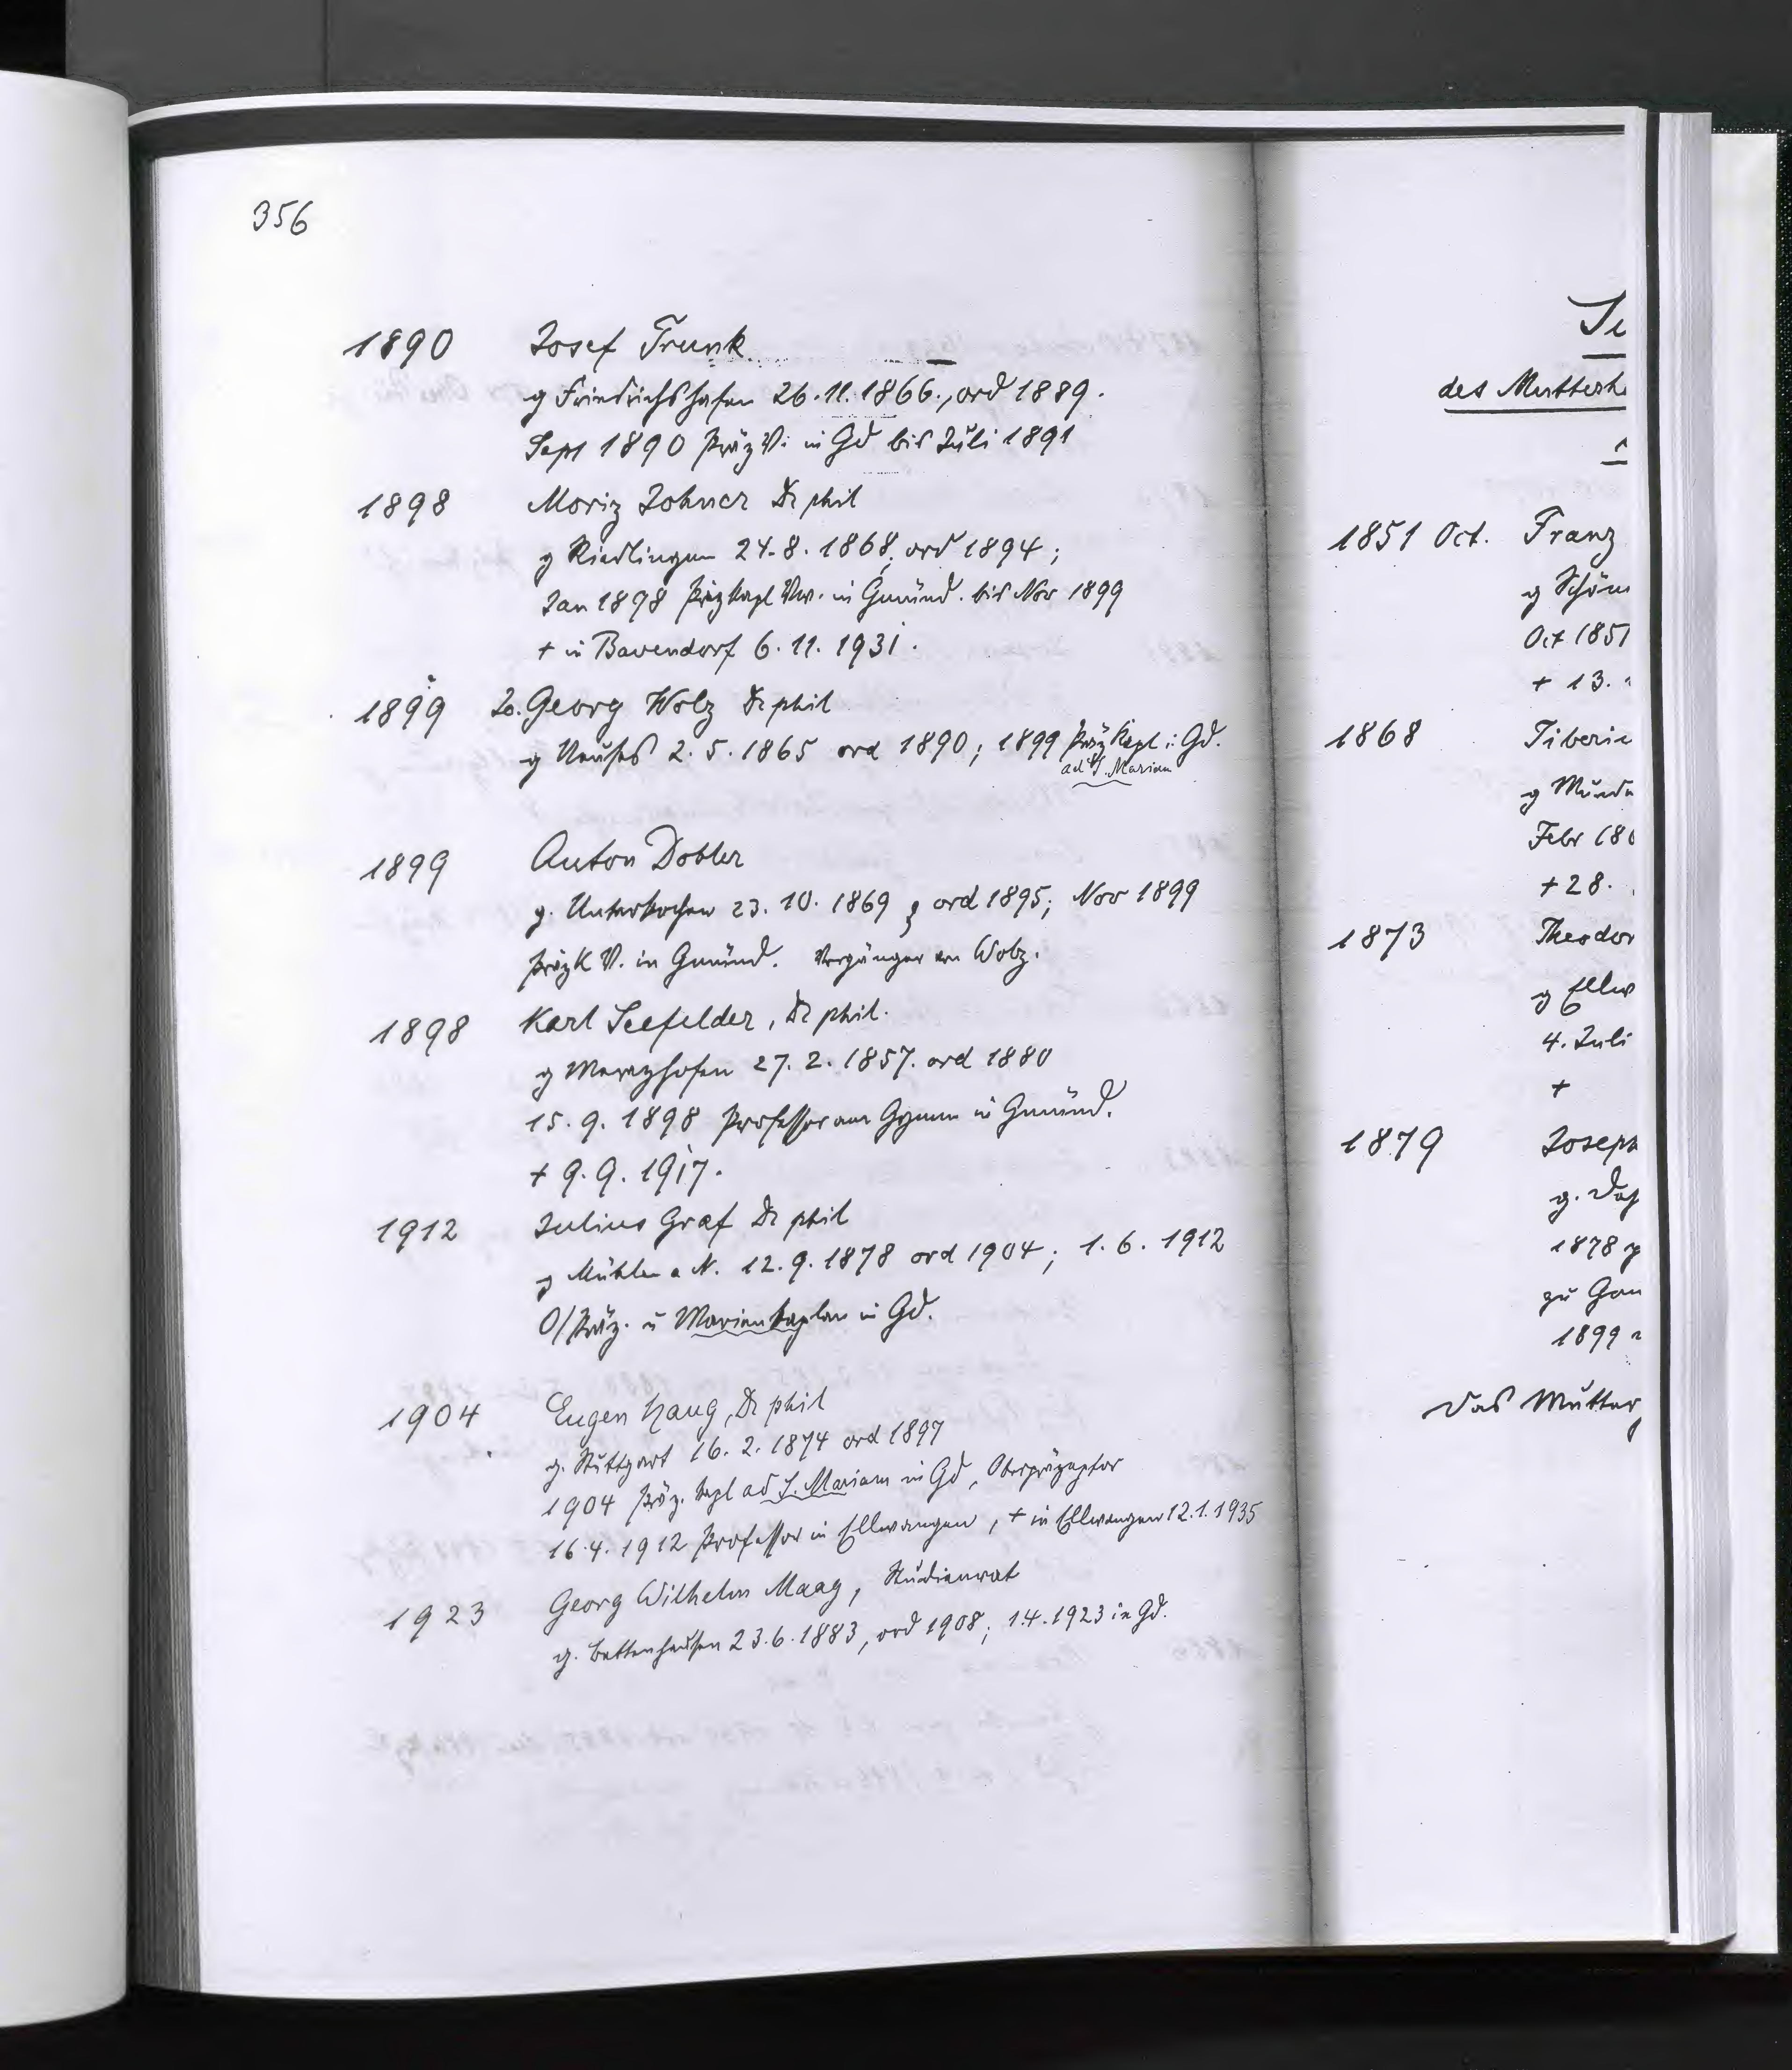 356
1890 Josef Trunk
g Friedrichshafen 26.11.1866., ord 1889.
Sept 1890 PräzV. in Gd bis Juli 1891
1898 Moriz Johner Dr phil
g Riedlingen 24.8.1868, ord 1894;
Jan 1898 PräzKapl Vw. in Gmünd. bis Nov 1899
+ in Bavendorf 6.11.1931.
1899 Jo. Georg Wolz Dr phil
g Neuses 2.5.1865 ord 1890; 1899 PräzKapl i. Gd.
ad S. Mariam
1899 Anton Dobler
g. Unterkochen 23.10.1869; ord 1895; Nov 1899
PräzK V. in Gmünd. Vorgänger von Wolz.
1898 Karl Seefelder, Dr phil.
g Merazhofen 27.2.1857. ord 1880
15.9.1898 Professor am Gymn in Gmünd.
+ 9.9.1917.
1912 Julius Graf Dr phil
g Mühlen a N. 12.9.1878 ord 1904; 1.6.1912
O/Präz. u Marienkaplan in Gd.
1904 Eugen Haug, Dr phil
g. Stuttgart 16.2.1874 ord 1897
1904 Präz. Kapl ad S. Mariam in Gd, Oberpräzeptor
16.4.1912 Professor in Ellwangen, + in Ellwangen 12.1.1935
1923 Georg Wilhelm Maag, Studienrat
g. Bettenhausen 23.6.1883, ord 1908; 1.4.1923 in Gd.
des Mutterh
1851 Oct. Franz
g Schön
Oct 1851
+ 13.
1868 Tiberi
g
Febr 18
+ 28.
1873 Theodor
g Ellw
4. Juli
+
1879 Joseph
g.
1878
zu
1899
Das Mutter